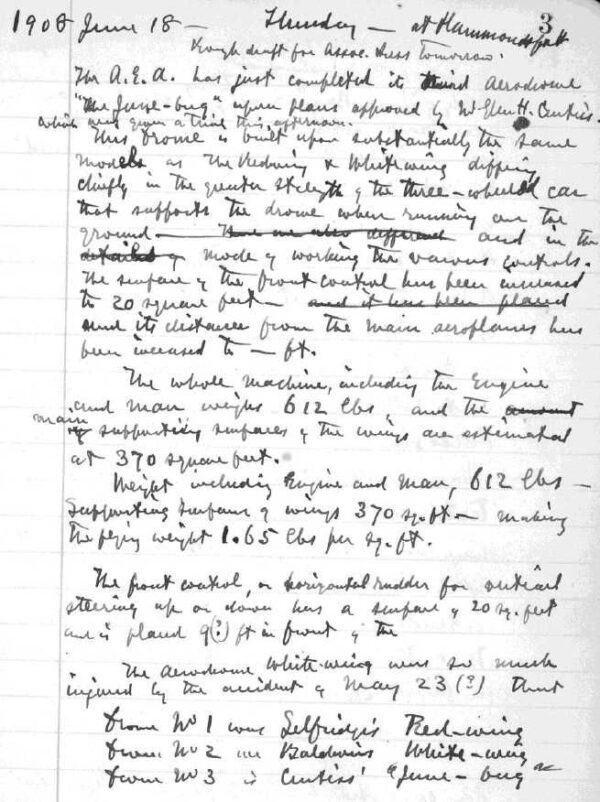 1908 June 18 — Thursday — at Hammondsport
3
Rough draft for Assoc. thess tomorrow.
The A.E.A. has just completed its third Aerodrome
"The June-bug" upon plans approved by Mr Glenn H. Curtiss.
which was given a trial this afternoon.
This drome is built upon substantially the same
models as the Redwing & Whitewing differing
chiefly in the greater strength of the three-wheeled car
that supports the drome when running on the
ground — There are also different and in the
details of mode of working the various controls.
The surface of the front control has been increased
to 20 square feet — and it has been placed
and its distance from the main aeroplanes has
been increased to — ft.
The whole machine, including the Engine
and man weighs 612 lbs, and the amount
main
of supporting surfaces of the wings are estimated
at 370 square feet.
Weight including Engine and man, 612 lbs —
Supporting surfaces of wings 370 sq. ft — making
the flying weight 1.65 lbs per sq. ft.
The front control, or horizontal rudder for vertical
steering up or down has a surface of 20 sq. feet
and is placed 9(?) ft in front of the
The Aerodrome White-wing was so much
injured by the accident of May 23 (?) that
Drome No 1 was Selfridge's Red-wing
Drome No 2 was Baldwin's White-wing
Drome No 3 is Curtiss' "June-bug"